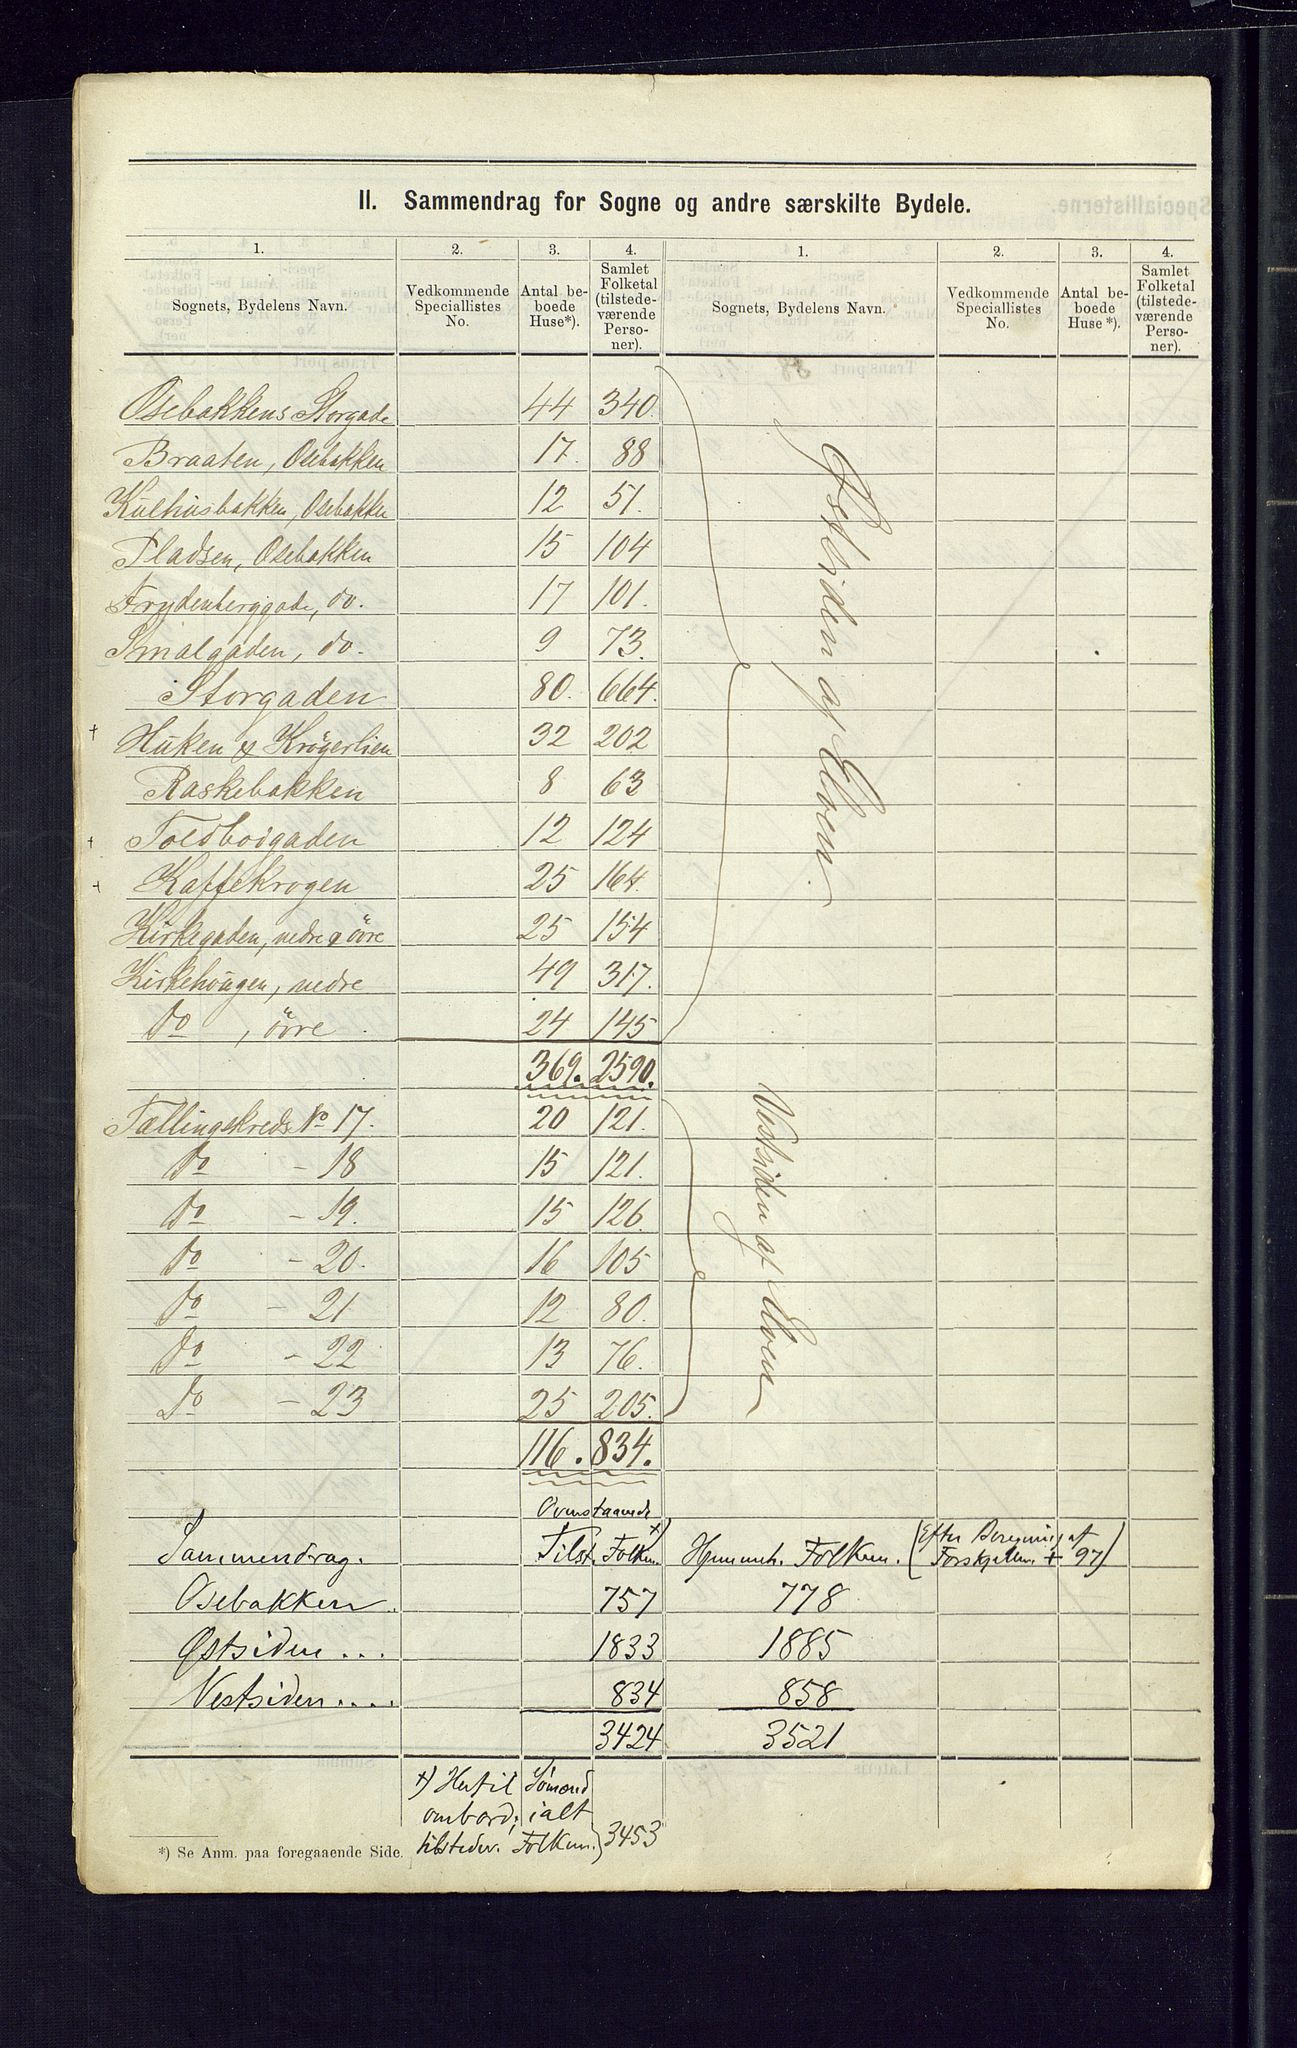 II. Sammendrag for Sogne og andre særskilte Bydele.
1. 2. 3. 4. 1. 2. 3. 4.
Sognets, Bydelens Navn. Vedkommende Speciallistes No. Antal beboede Huse*). Samlet Folketal (tilstedeværende Personer). Sognets, Bydelens Navn. Vedkommende Speciallistes No. Antal beboede Huse*). Samlet Folketal (tilstedeværende Personer).
Osebakkens Storgade 44 340.
Braaten, Osebakken 17. 88
Kulhusbakken, Osebakken 12 51.
Pladsen, Osebakken 15 104
Frydenberggade, do. 17 101.
Smalgaden, do. 9 73.
Storgaden 80. 664.
+ Huken & Krögerlien 32 202
Raskebakken 8 63
+ Toldbodgaden 12 124
+ Kaffekrogen 25 164.
Kirkegaden, nedre & övre 25 154
Kirkehougen, nedre 49 317.
do , övre 24 145
369. 2590.
Østsiden af Elven
Tællingskreds No 17. 20 121.
do - 18 15 121.
do - 19. 15 126.
do - 20. 16 105
do - 21 12 80.
do - 22 13 76.
do - 23 25 205.
116. 834.
Vestsiden af Elven
Ovenstaaende
Sammendrag. Tilst. Folkem. +) Hjemmeh. Folkem. (Efter Beregning af Forskjellen + 97)
Osebakken. 757 778
Østsiden ... 1833 1885
Vestsiden .... 834 858
3424 3521
+) Hertil Sömænd
ombord; ialt
tilstedev. Folkem.) 3453
*) Se Anm. paa foregaaende Side.